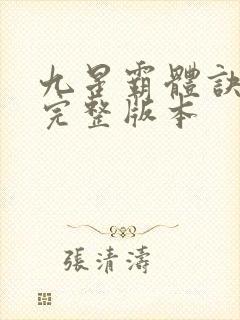 九星霸體訣
完整版本
張清濤